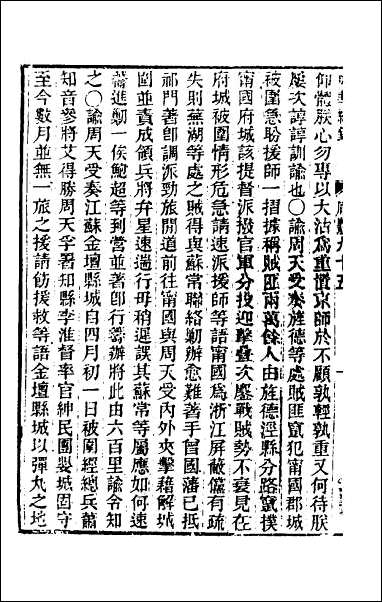 仰體朕心勿專以大沽爲重置京師於不顧孰輕孰重又何待朕
屢次諄諄訓諭也○諭周天受奏旌德等處賊匪竄犯甯國郡城
被圍急盼援師一摺據稱賊匪兩萬餘人由旌德涇縣分路竄撲
甯國府城該提督派撥官軍分投迎擊疊次鏖戰賊勢不衰見在
府城被圍情形危急請速派援師等語甯國爲浙江屏蔽儻有疏
失則蕪湖等處之賊得與蘇常聯絡勦辦愈難著手曾國藩已抵
祁門著卽調派勁旅開道前往甯國與周天受內外夾擊藉解城
圍並責成領兵將弁星速遄行毋稍遲誤其蘇常等屬應如何速
籌進勦一俟鮑超等到營並著卽行籌辦將此由六百里諭令知
之○諭周天受奏江蘇金壇縣城自四月初一日被圍經總兵蕭
知音參將艾得勝周天孚署知縣李淮督率官紳民團嬰城固守
至今數月並無一旅之援請飭援救等語金壇縣城以彈丸之地